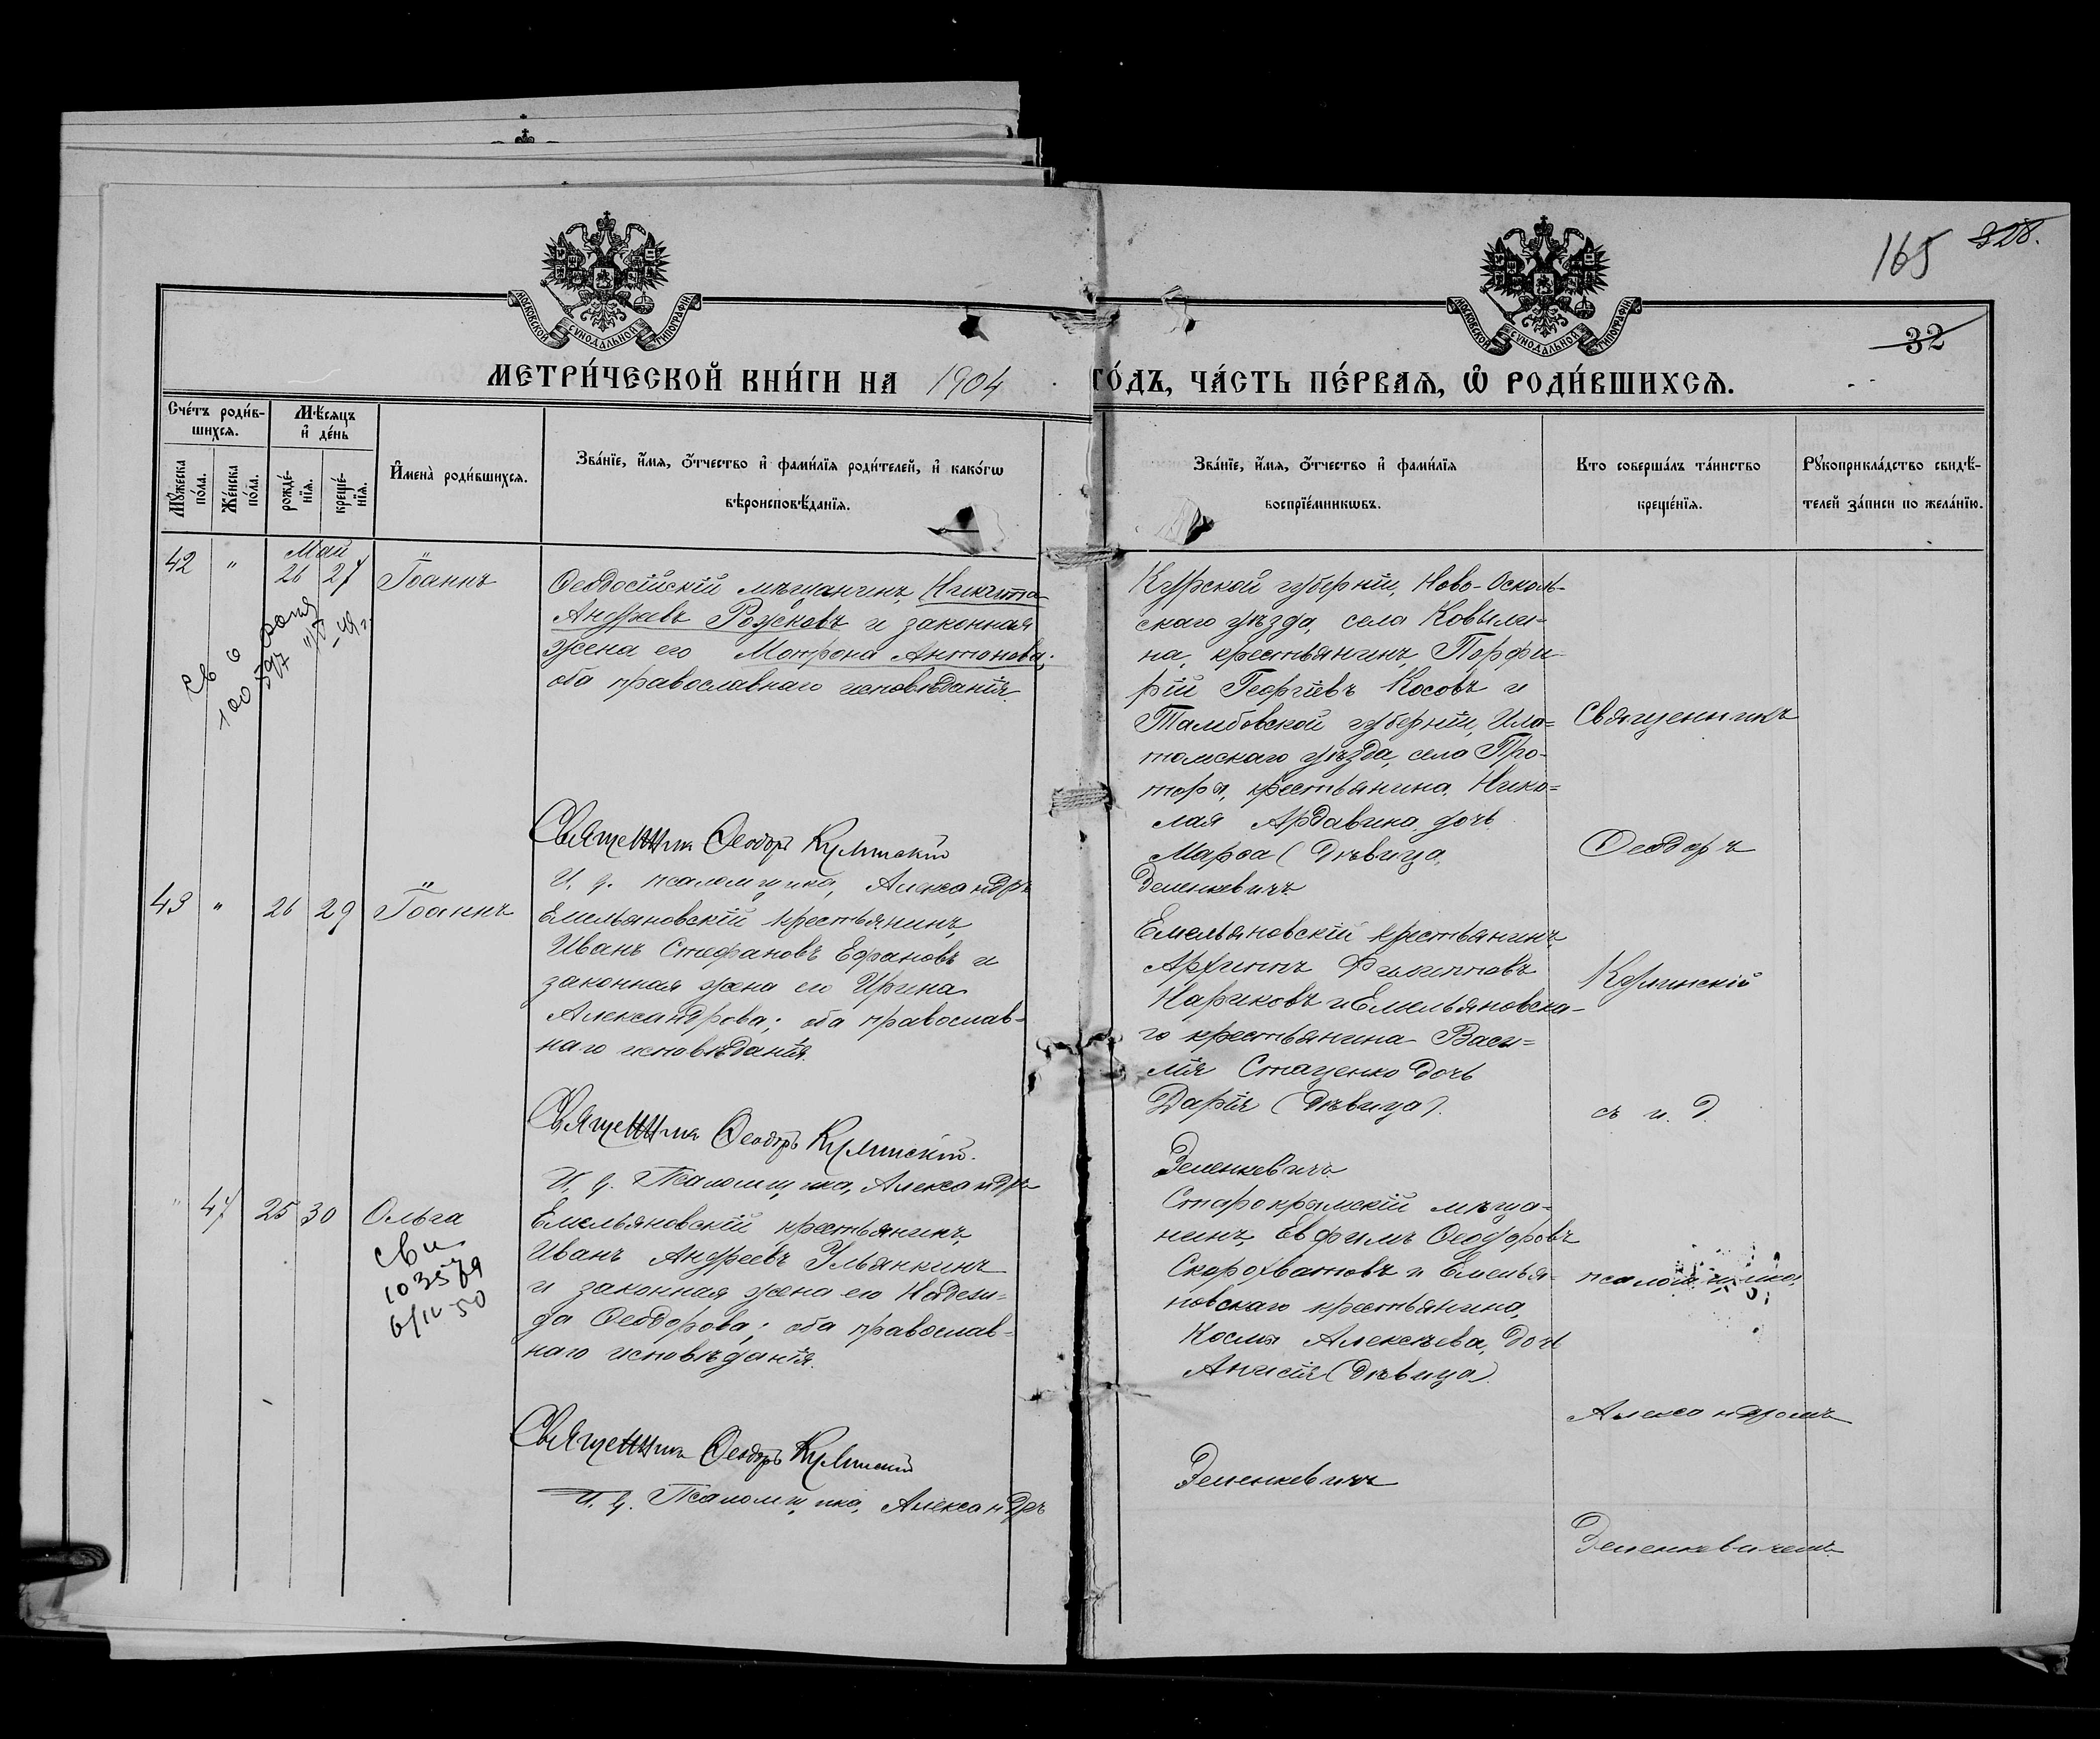 165 328.
32
МОСКОВСКОЙ СѴНОДАЛЬНОЙ ТИПОГРАФІИ
МОСКОВСКОЙ СѴНОДАЛЬНОЙ ТИПОГРАФІИ
МЕТРИ́ЧЕСКОЙ КНИ́ГИ НА 1904 ГО́ДЪ, ЧА́СТЬ ПЕ́РВАѦ, Ѡ҆ РОДИ́ВШИХСѦ.
Сче́тъ роди́в-
шихсѧ.
Мꙋ́жеска по́ла.
Же́нска по́ла.
Мѣ́сѧцъ
и҆ де́нь
рожде́-
нїѧ.
креще́-
нїѧ.
И҆мена̀ роди́вшихсѧ.
Зва́нїе, и҆́мѧ, ѻ҆́тчество и҆ фами́лїѧ роди́телей, и҆ како́гѡ
вѣроисповѣ́данїѧ.
Зва́нїе, и҆́мѧ, ѻ҆́тчество и҆ фами́лїѧ
воспрїе́мникѡвъ.
Кто соверша́лъ та́инство
креще́нїѧ.
Рꙋкоприкла́дство свидѣ́-
телей за́писи по жела́нїю.
42 " Май 26 27 Іоаннъ
Ѳеодосійскій мѣщанинъ, Никита
Андреевъ Рожковъ и законная
жена его Матрона Антонова;
оба православнаго исповѣданія.
Священникъ Ѳеодоръ Кулинскій
И. д. псаломщика, Александръ
Курской губерніи, Ново-Осколь-
скаго уѣзда, села Ковыли-
на, крестьянинъ Порфи-
рій Георгіевъ Косовъ и
Тамбовской губерніи, Ила-
томскаго уѣзда, села Про-
крестьянина Нико-
лая Ардавина дочь
Марѳа (дѣвица)
Зеленкевичъ
43 " 26 29 Іоаннъ
Емельяновскій крестьянинъ
Иванъ Стефановъ Ефановъ и
законная жена его Ирина
Александрова; оба православ-
наго исповѣданія.
Священникъ Ѳеодоръ Кулинскій.
И. д. Псаломщика, Александръ
Емельяновскій крестьянинъ
Архиппъ Филипповъ
Нариковъ и Емельяновска-
го крестьянина Васи-
лія Стаценко дочь
Дарія (дѣвица).
Зеленкевичъ
" 47 25 30 Ольга
103579
6/IV-50
Емельяновскій крестьянинъ,
Иванъ Андреевъ Ульянкинъ
и законная жена его Надеж-
да Ѳеодорова; оба православ-
наго исповѣданія.
Священникъ Ѳеодоръ Кулинскій
И. д. Псаломщика, Александръ
Старокрымскій мѣща-
нинъ, Евфимъ Ѳеодоровъ
Скорохватовъ и Емелья-
новскаго крестьянина,
Космы Алексѣева, дочь
Анисія (дѣвица).
Зеленкевичъ
Священникъ
Ѳеодоръ
Кулинскій
съ и. д.
псаломщика,
Александромъ
Зеленкевичемъ.